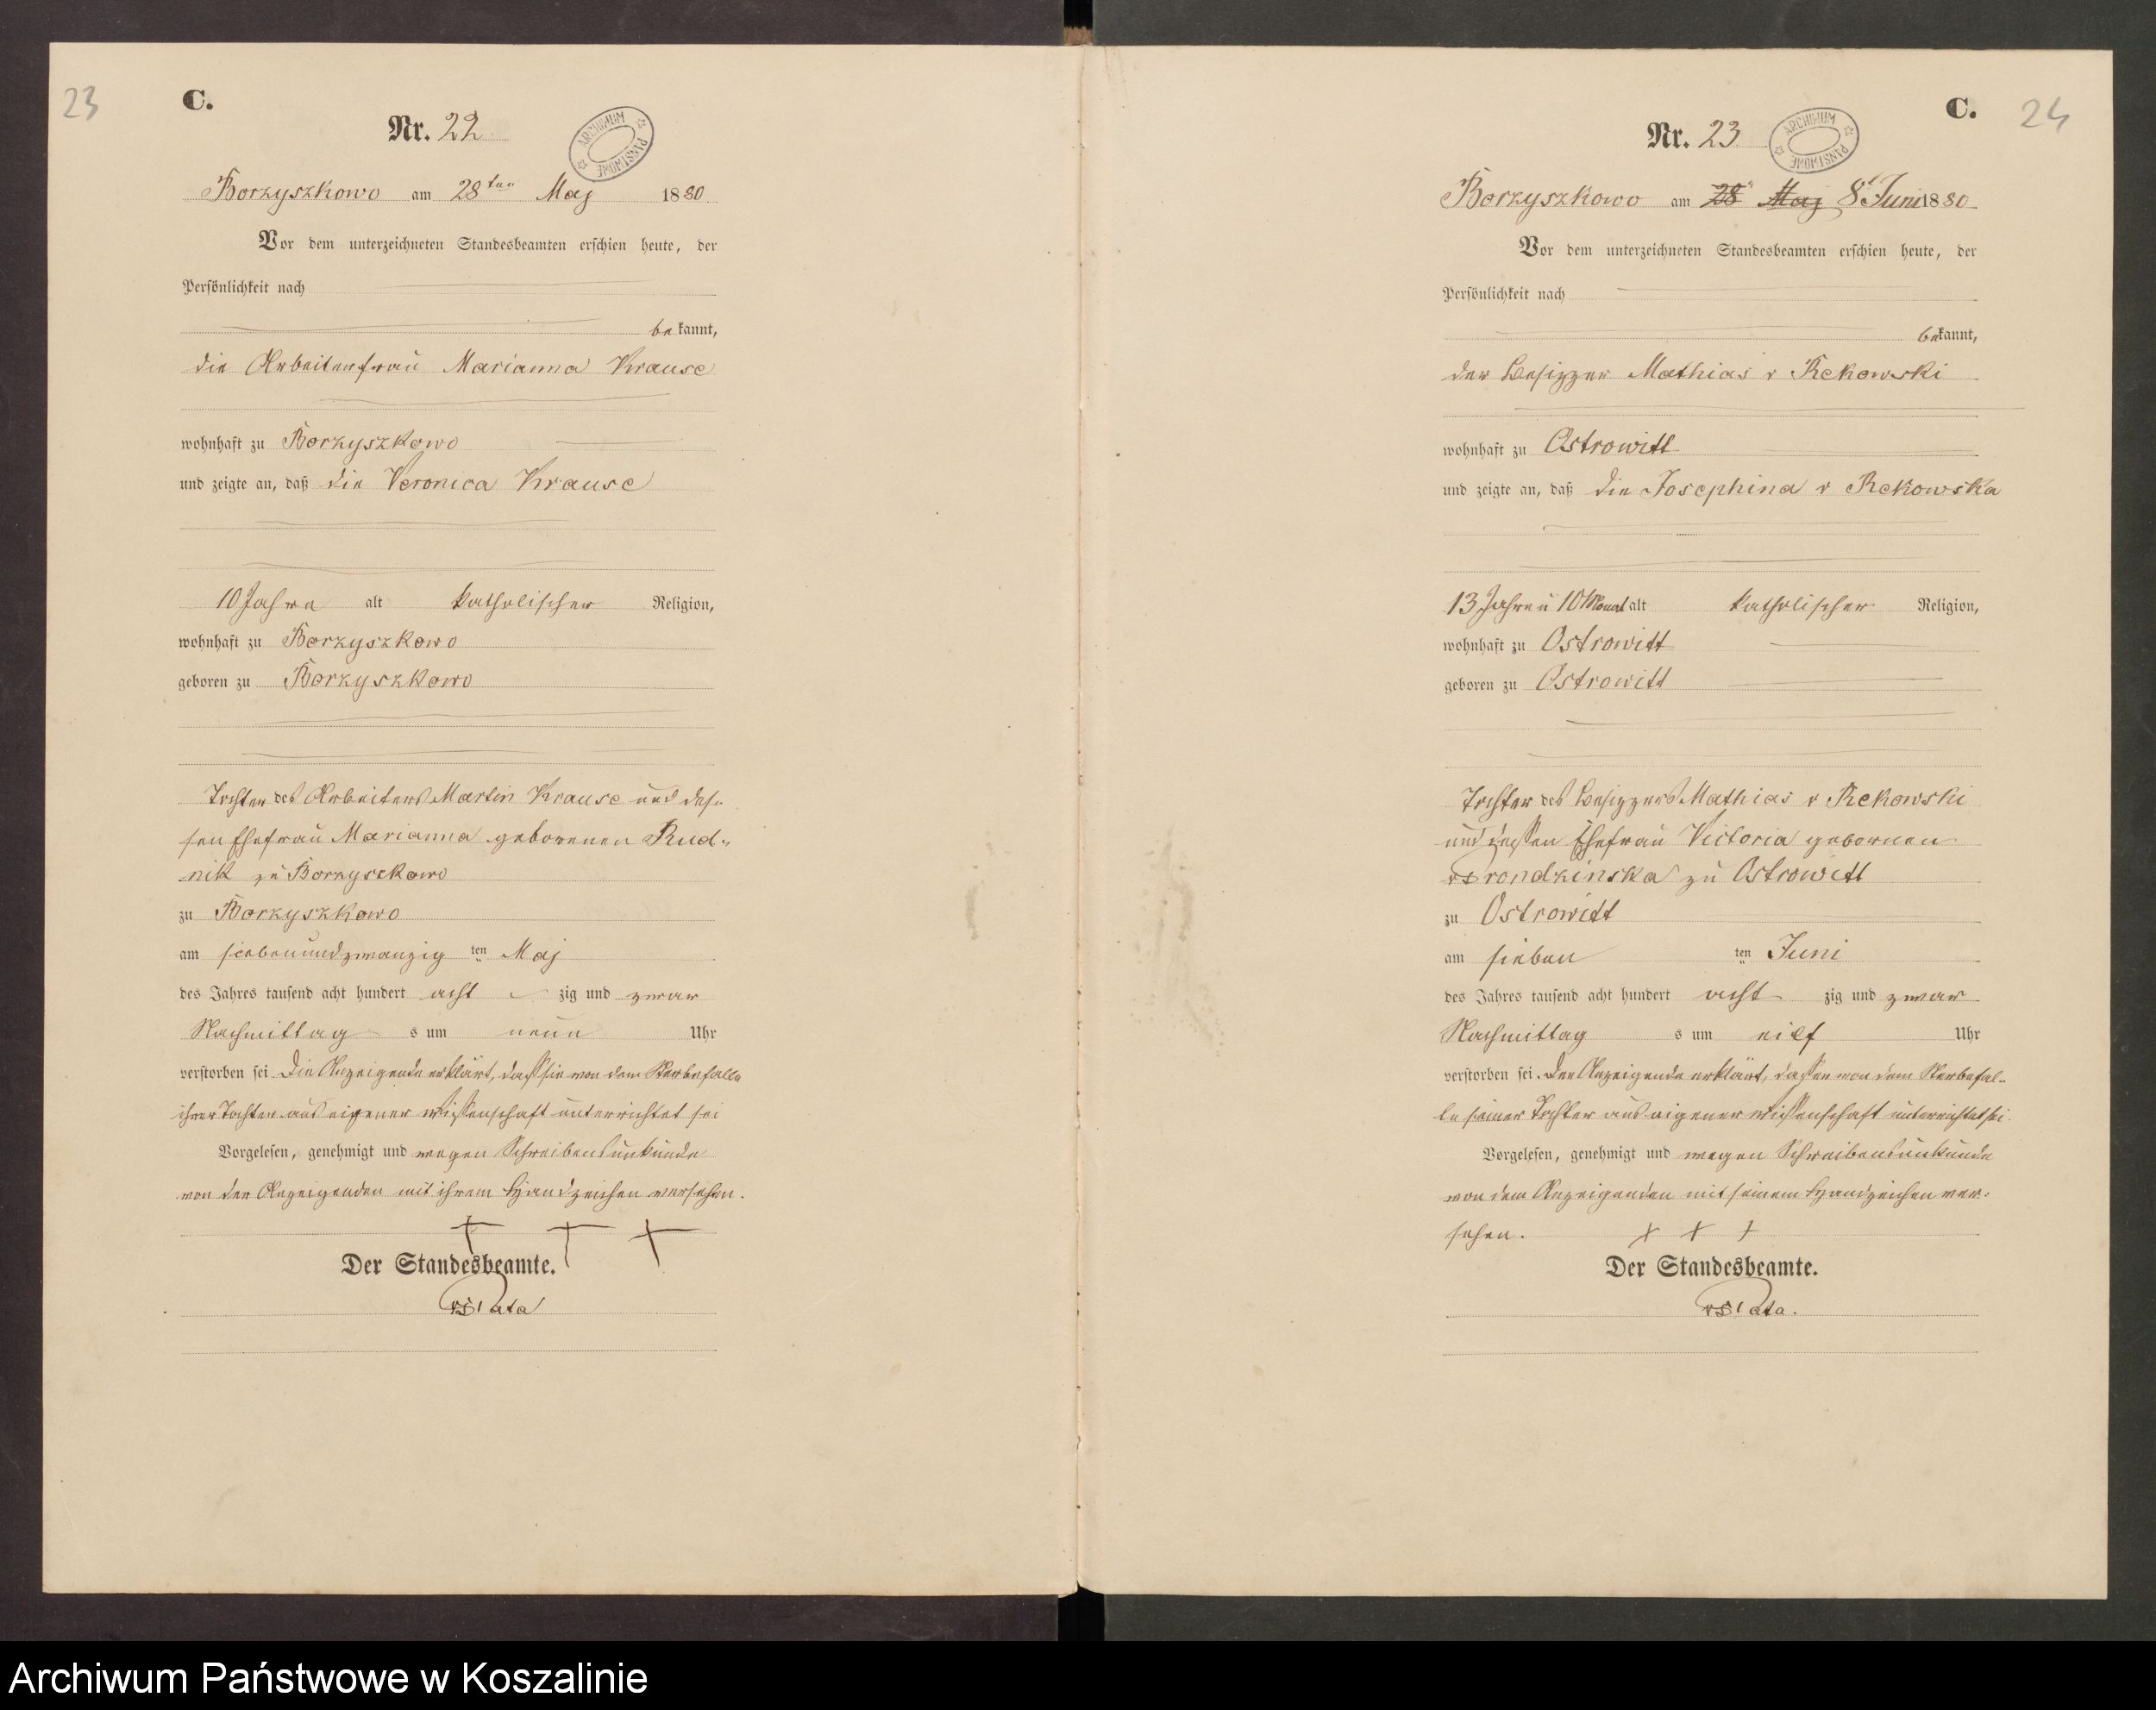 23
C.
Nr. 22
ARCHIWUM PAŃSTWOWE
Borzyszkowo am 28ten Maj 1880
Vor dem unterzeichneten Standesbeamten erschien heute, der
Persönlichkeit nach
bekannt,
die Arbeiterfrau Marianna Krause
wohnhaft zu Borzyszkowo
und zeigte an, daß die Veronica Krause
10 Jahre alt katholischer Religion,
wohnhaft zu Borzyszkowo
geboren zu Borzyszkowo
Tochter des Arbeiters Martin Krause und des-
sen Ehefrau Marianna geborenen Rud-
nik zu Borzysckowo
zu Borzyszkowo
am siebenundzwanzig ten Maj
des Jahres tausend acht hundert acht zig und zwar
Nachmittag s um neun Uhr
verstorben sei. Die Anzeigende erklärt, daß sie von dem Sterbefalle
ihrer Tochter aus eigener Wissenschaft unterrichtet sei
Vorgelesen, genehmigt und wegen Schreibensunkunde
von der Anzeigenden mit ihrem Handzeichen versehen.
† † †
Der Standesbeamte.
24
C.
Nr. 23
ARCHIWUM PAŃSTWOWE
Borzyszkowo am 28 Maj 8 Juni 1880
Vor dem unterzeichneten Standesbeamten erschien heute, der
Persönlichkeit nach
bekannt,
der Besitzer Mathias v Rekowski
wohnhaft zu Ostrowitt
und zeigte an, daß die Josephina v Rekowska
13 Jahre u 10 Monat alt katholischer Religion,
wohnhaft zu Ostrowitt
geboren zu Ostrowitt
Tochter des Besitzers Mathias v Rekowski
und dessen Ehefrau Victoria gebornen
v Prondzinska zu Ostrowitt
zu Ostrowitt
am sieben ten Juni
des Jahres tausend acht hundert acht zig und zwar
Nachmittag s um eilf Uhr
verstorben sei. Der Anzeigende erklärt, daß er von dem Sterbefal-
le seiner Tochter aus eigener Wissenschaft unterrichtet sei.
Vorgelesen, genehmigt und wegen Schreibensunkunde
von dem Anzeigenden mit seinem Handzeichen ver-
sehen. + + +
Der Standesbeamte.
Archiwum Państwowe w Koszalinie